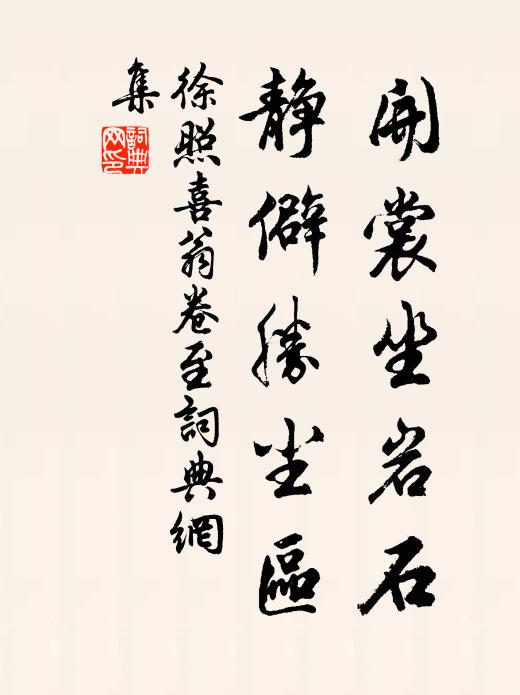 開裳坐岩石
静僻勝尘區
徐照喜翁卷至詞典網
集
詞典
网印